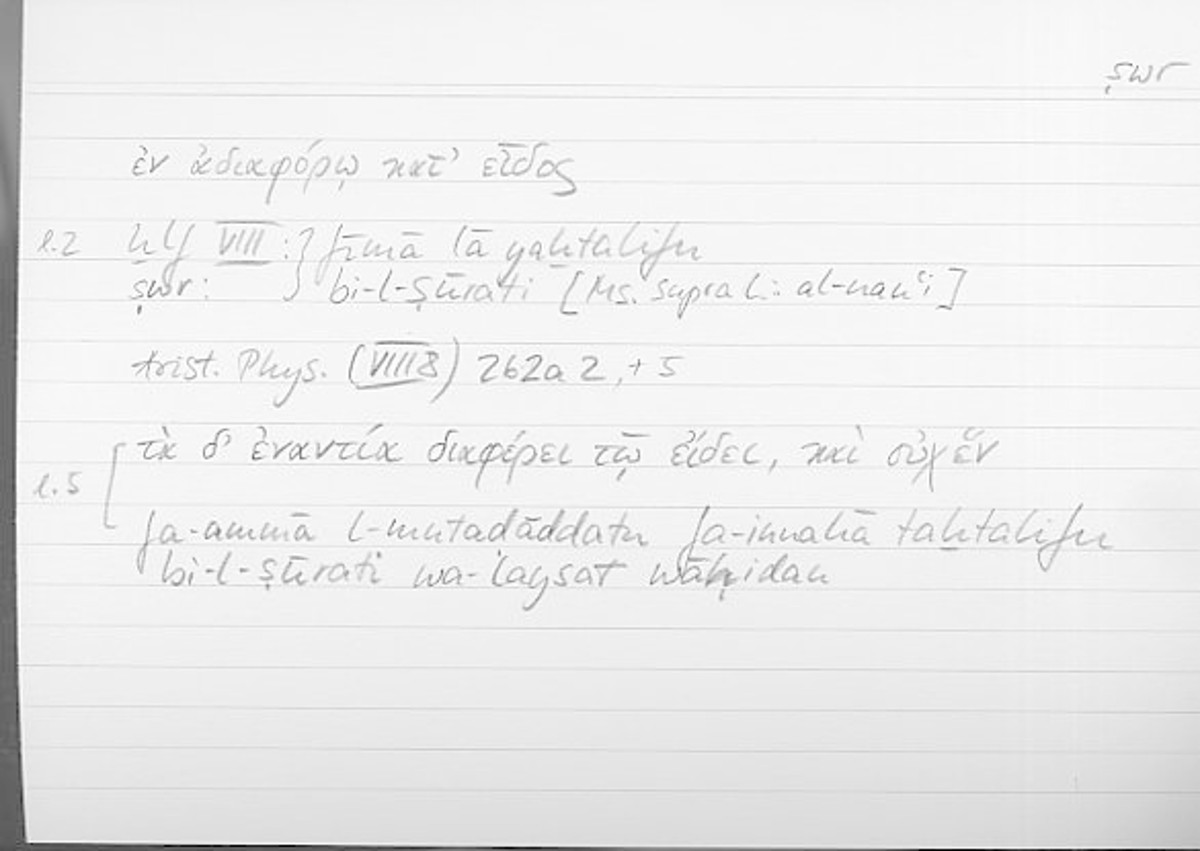 ṣwr
ἐν ἀδιαφόρῳ κατ' εἶδος
l.2 ḫlf VIII : } fīmā lā yaḫtalifu
ṣwr : bi-l-ṣūrati [Ms. supra l.: al-nawʿi]
Arist. Phys. (VIII 8) 262a 2, + 5
τὰ δ' ἐναντία διαφέρει τῷ εἴδει, καὶ οὐχ ἕν
l.5
fa-ammā l-mutaḍāddatu fa-innahā taḫtalifu
bi-l-ṣūrati wa-laysat wāḥidan